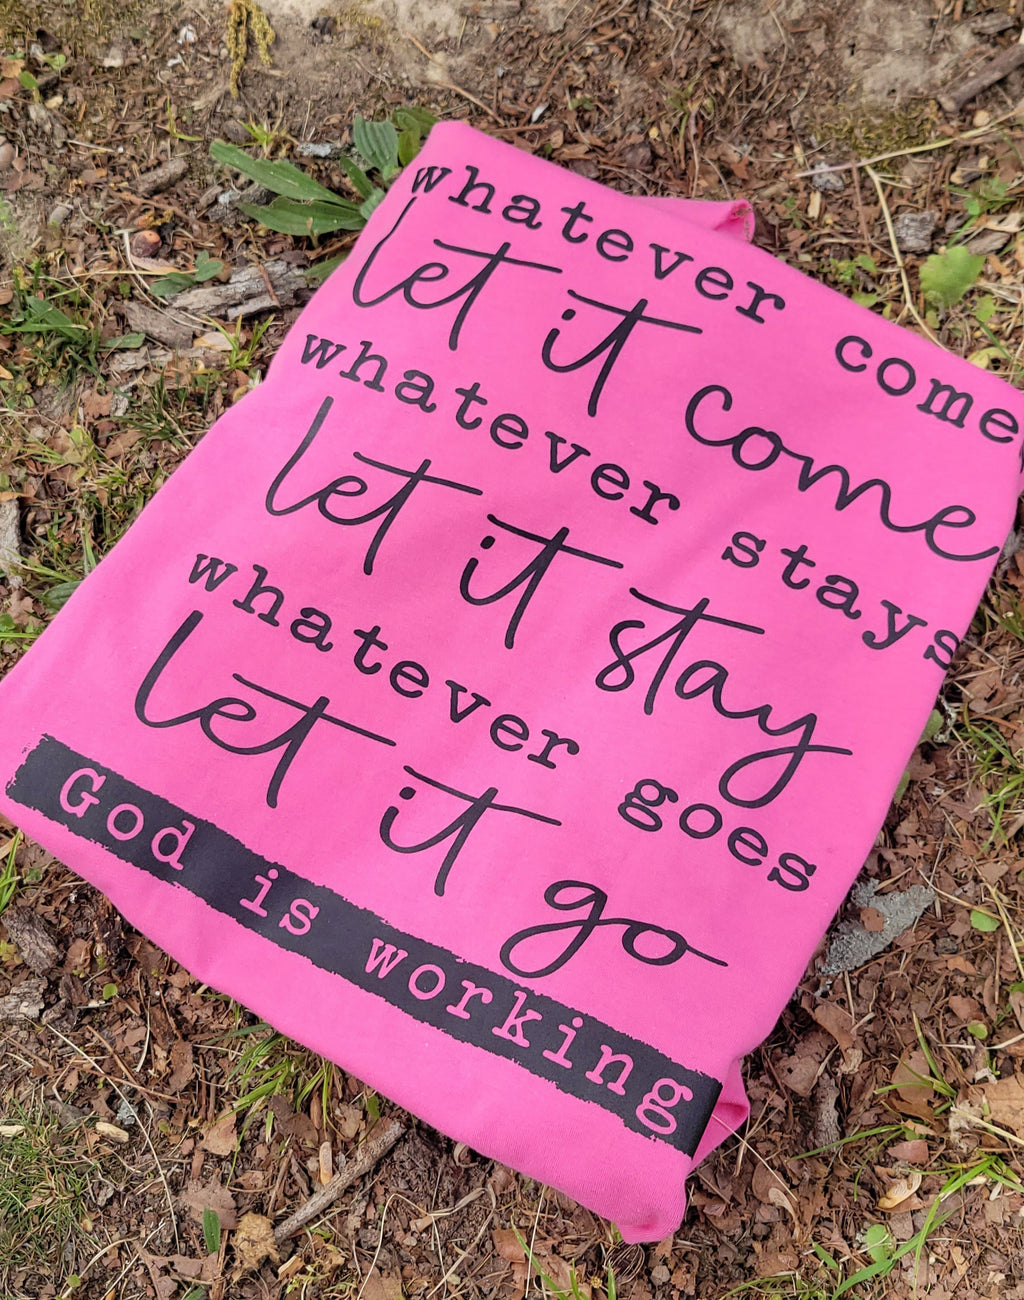 whatever come
let it come
whatever stays
let it stay
whatever goes
let it go
God is working